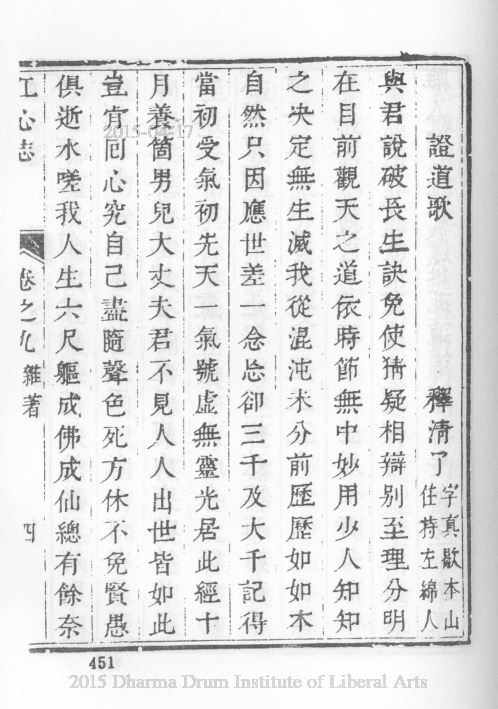 證道歌　釋清了　字真歇本山住持左綿人
與君說破長生訣免使猜疑相辯别至理分明
在目前觀天之道依時節無中妙用少人知知
之决定無生滅我從混沌未分前歷歷如如本
自然只因應世差一念忩卻三千及大千記得
當初受氣初先天一氣號虛無靈光居此經十
月養箇男兒大丈夫君不見人人出世皆如此
豈肯囘心究自己盡隨聲色死方休不免賢愚
俱逝水嗟我人生六尺軀成佛成仙總有餘奈
江心志　卷之九雜著　四
451
2015-04-17
2015 Dharma Drum Institute of Liberal Arts